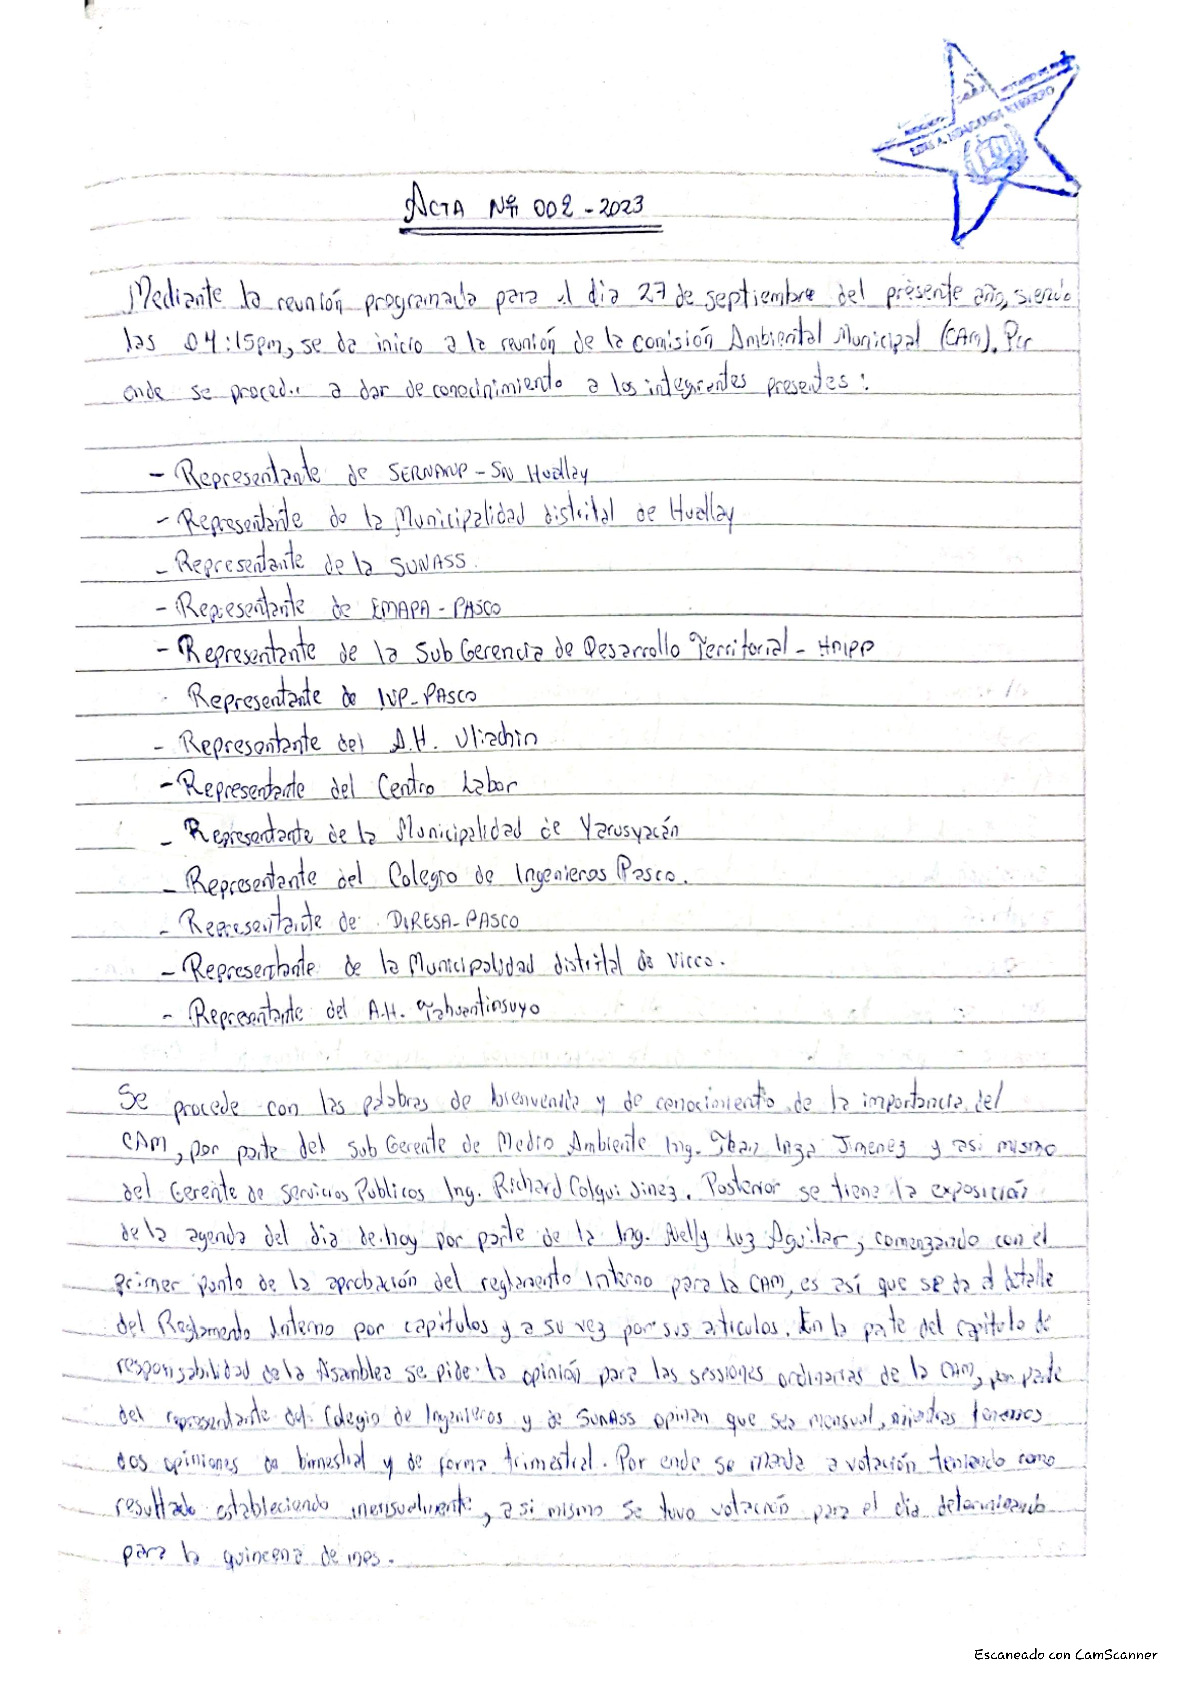 ACTA Nº 002 - 2023
Mediante la reunión programada para el dia 27 de septiembre del presente año, siendo
las 04:15pm, se da inicio a la reunión de la comisión Ambiental Municipal (CAM). Por
ende se proced.. a dar de conocinimiento a los integrantes presentes:
- Representante de SERNANP - SN Huallay
- Representante de la Municipalidad distrital de Huallay
- Representante de la SUNASS.
- Representante de EMAPA - PASCO
- Representante de la Sub Gerencia de Desarrollo Territorial - HMPP
Representante de IVP-PASCO
- Representante del A.H. Uliachin
- Representante del Centro Labor
- Representante de la Municipalidad de Yarusyacán
- Representante del Colegio de Ingenieros Pasco.
- Representante de DIRESA-PASCO
- Representante de la Municipalidad distrital de Vicco.
- Representante del A.H. Tahuantinsuyo
Se procede con las palabras de bienvenida y de conocimiento de la importancia del
CAM, por parte del Sub Gerente de Medio Ambiente Ing. Inga Jimenez y asi mismo
del Gerente de Servicios Publicos Ing. Richard Colqui Jinez. Posterior se tiene la exposición
de la agenda del dia de hoy por parte de la Ing. Nelly Luz Aguilar, comenzando con el
primer punto de la aprobación del reglamento Interno para la CAM, es así que se da el detalle
del Reglamento Interno por capitulos y a su vez por sus articulos. En la parte del capitulo de
responsabilidad de la Asamblea se pide la opinión para las sessiones ordinarias de la CAM, por parte
del representante del Colegio de Ingenieros y de SUNASS opinan que sea mensual, mientras tenemos
dos opiniones de bimestral y de forma trimestral. Por ende se manda a votación teniendo como
resultado estableciendo mensualmente, asi mismo se tuvo votación para el dia determinando
para la quincena de mes.
Escaneado con CamScanner